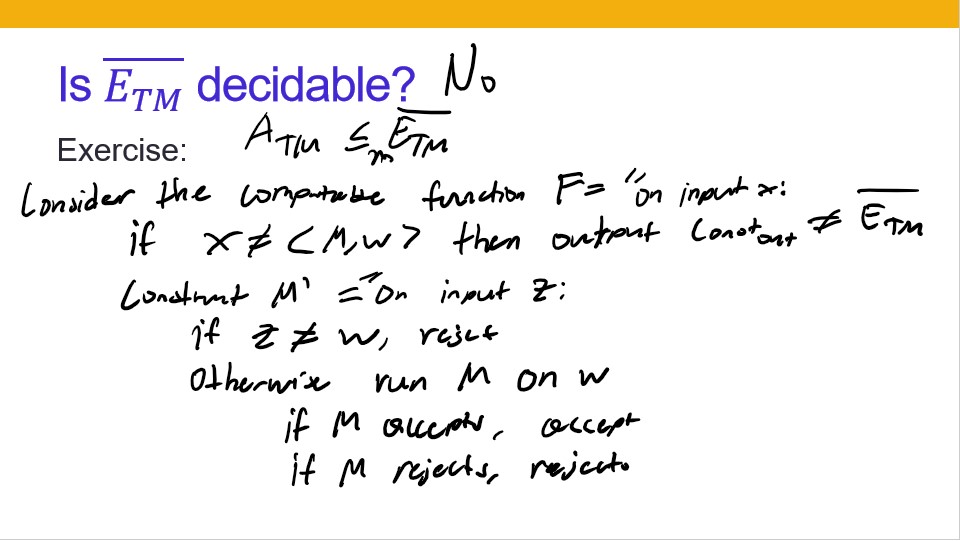 Is $\overline{E_{TM}}$ decidable? No
Exercise: $A_{TM} \leq_m \overline{E_{TM}}$
Consider the computable function F = "on input x:
if x ≠ <M,w> then output const_out ≠ $\overline{E_{TM}}$
Construct M' = "on input z:
if z ≠ w, reject
Otherwise run M on w
if M accepts, accept
if M rejects, reject.